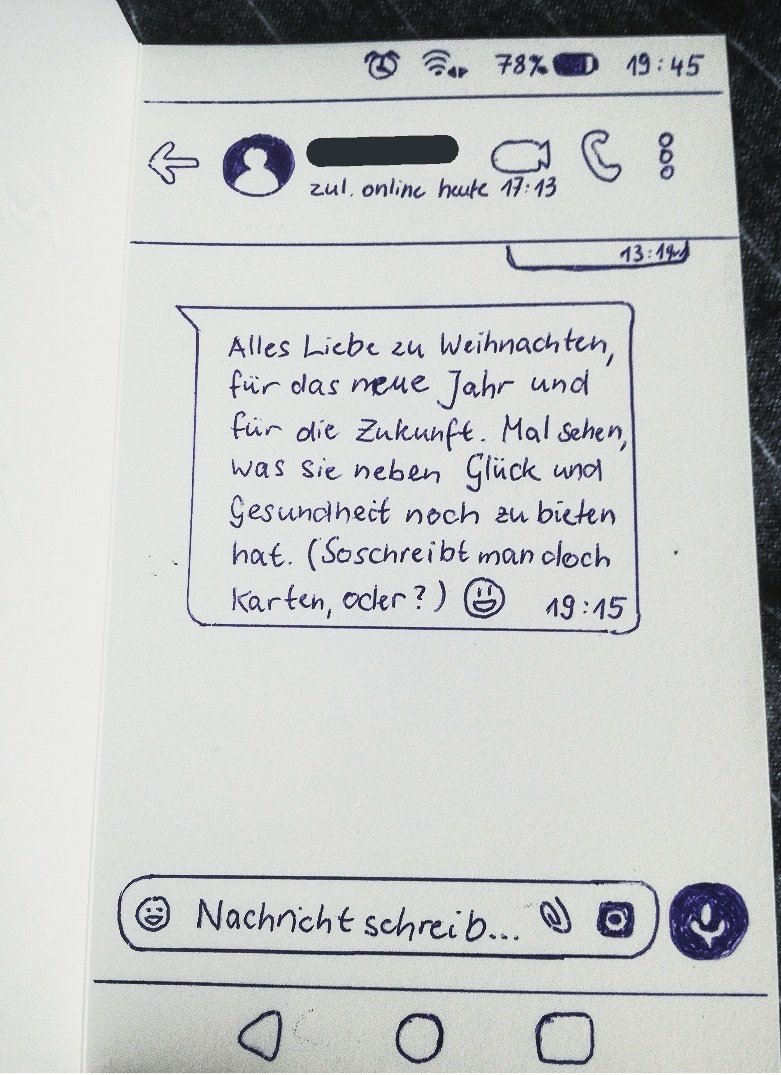 78% 19:45
zul. online heute 17:13
13:12
Alles Liebe zu Weihnachten,
für das neue Jahr und
für die Zukunft. Mal sehen,
was sie neben Glück und
Gesundheit noch zu bieten
hat. (So schreibt man doch
Karten, oder?)
19:15
Nachricht schreib...